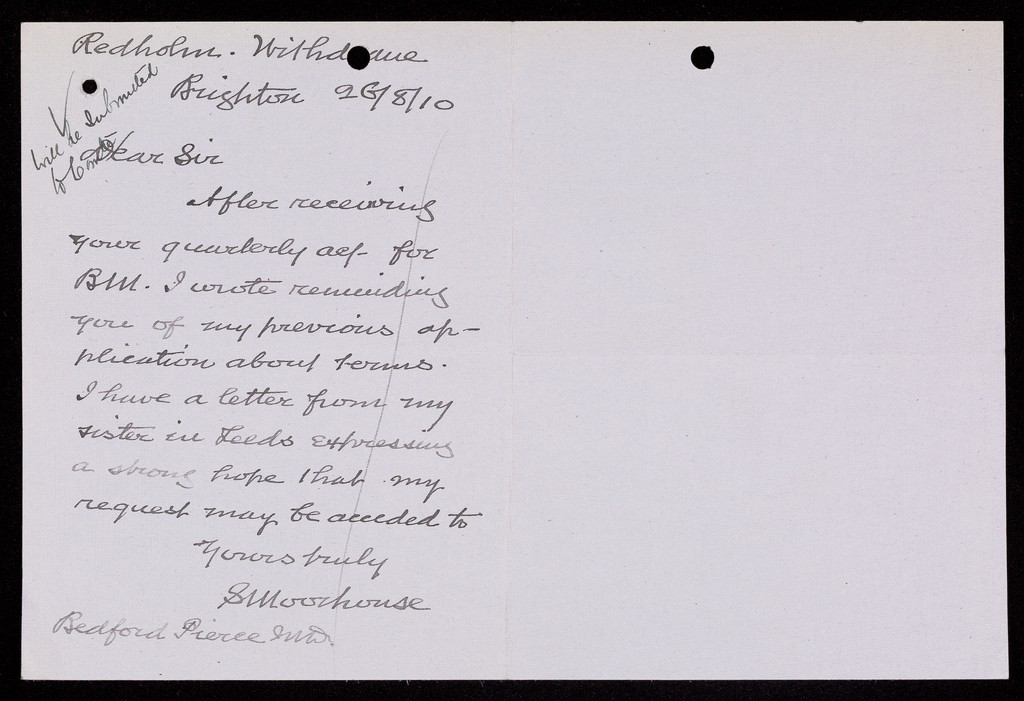 Redholm. Withdeane
Brighton 26/8/10
will be submitted
to Comtte
Dear Sir
After receiving
your quarterly acf- for
BM. I wrote reminding
you of my previous ap-
plication about terms.
I have a letter from my
sister in Leeds expressing
a strong hope that my
request may be acceded to
Yours truly
S Moorhouse
Bedford Pierce MD.